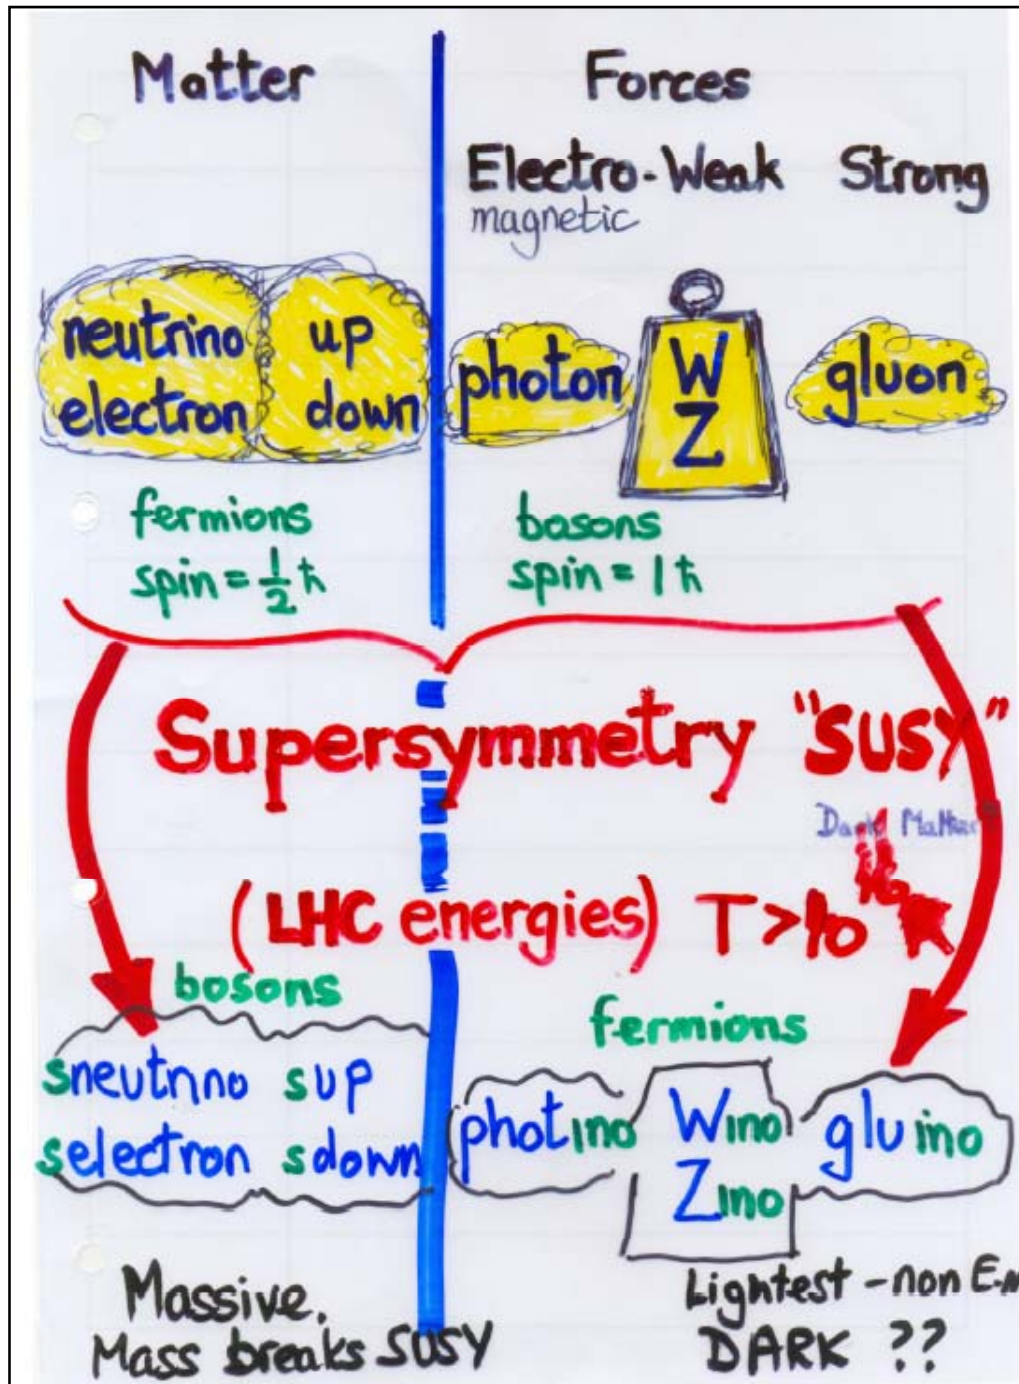 Matter
Forces
Electro-Weak Strong
magnetic
neutrino up
electron down
photon
W
Z
gluon
fermions
spin = ½ ħ
bosons
spin = 1 ħ
Supersymmetry "SUSY"
Dark Matter
(LHC energies) T > 10
bosons
fermions
sneutrino sup
selectron sdown
photino
Wino
Zino
gluino
Massive.
Mass breaks SUSY
Lightest - non E.
DARK ??